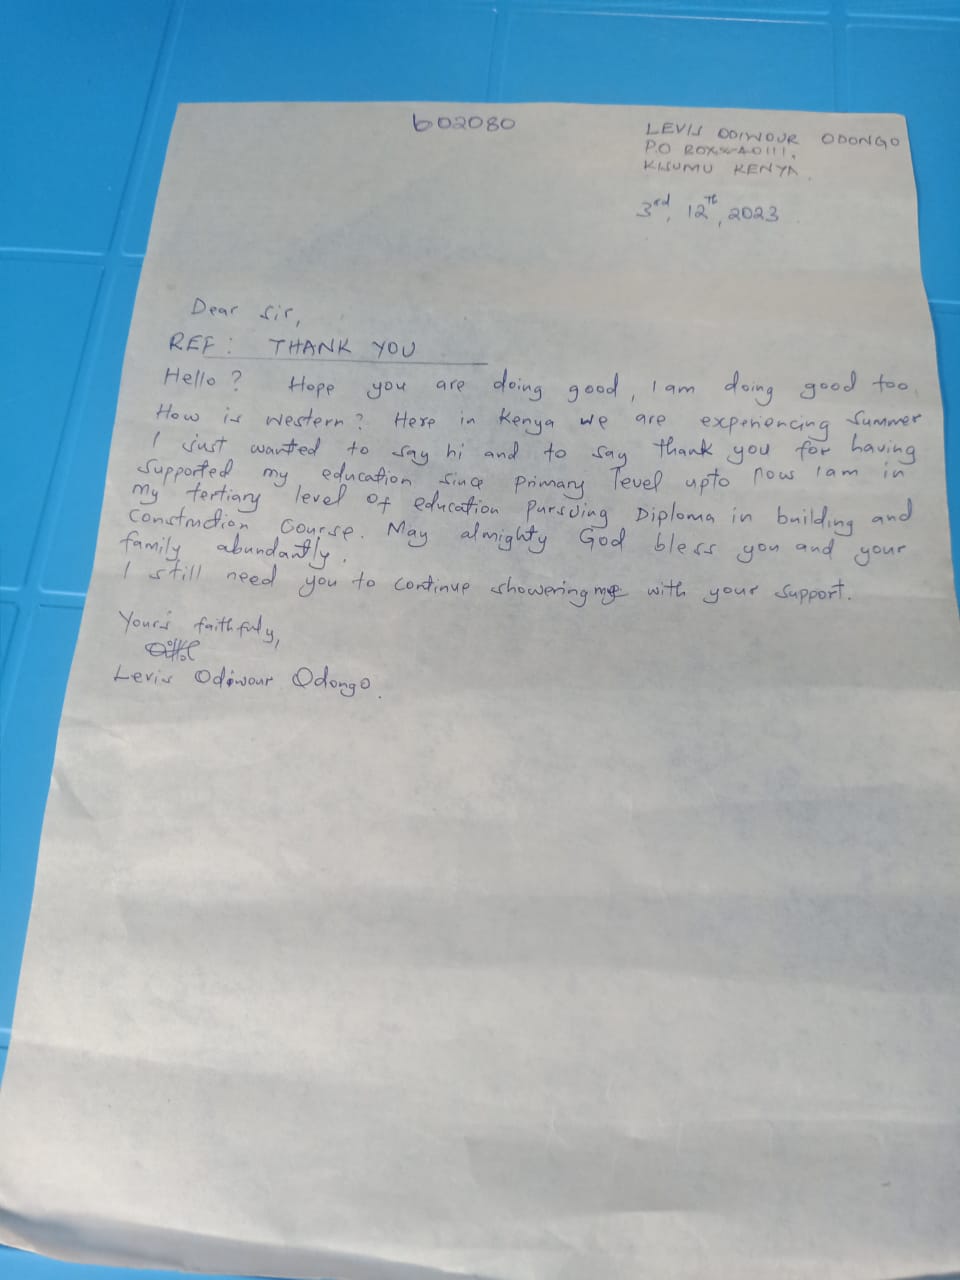 602080
LEVIS ODIWOUR ODONGO
P.O BOX 40111,
KISUMU KENYA.
3rd, 12th, 2023
Dear Sir,
REF: THANK YOU
Hello? Hope you are doing good, I am doing good too.
How is western? Here in Kenya we are experiencing summer
I just wanted to say hi and to say thank you for having
supported my education since primary level upto now I am in
my tertiary level of education pursuing Diploma in building and
construction course. May almighty God bless you and your
family abundantly.
I still need you to continue showering me with your support.
Yours faithfuly,
Levis Odiwour Odongo.